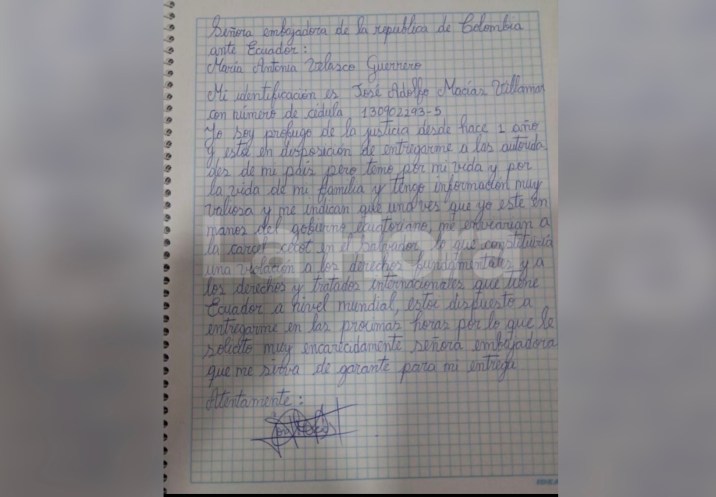 Señora embajadora de la republica de Colombia
ante Ecuador:
María Antonia Velasco Guerrero
Mi identificación es José Adolfo Macías Villamar
con número de cédula 130902293-5
Yo soy profugo de la justicia desde hace 1 año
y estoi en disposición de entregarme a las autorida
des de mi pais pero temo por mi vida y por
la vida de mi familia y tengo información muy
valiosa y me indican que una ves que yo este en
manos del gobierno ecuatoriano, me enviarian a
la carcel cecot en el Salvador, lo que constituiria
una violación a los derechos fundamentales y a
los derechos y tratados internacionales que tiene
Ecuador a nivel mundial, estoi dispuesto a
entregarme en las proximas horas por lo que le
solicito muy encarecidamente señora embajadora
que me sirva de garante para mi entrega
Atentamente: